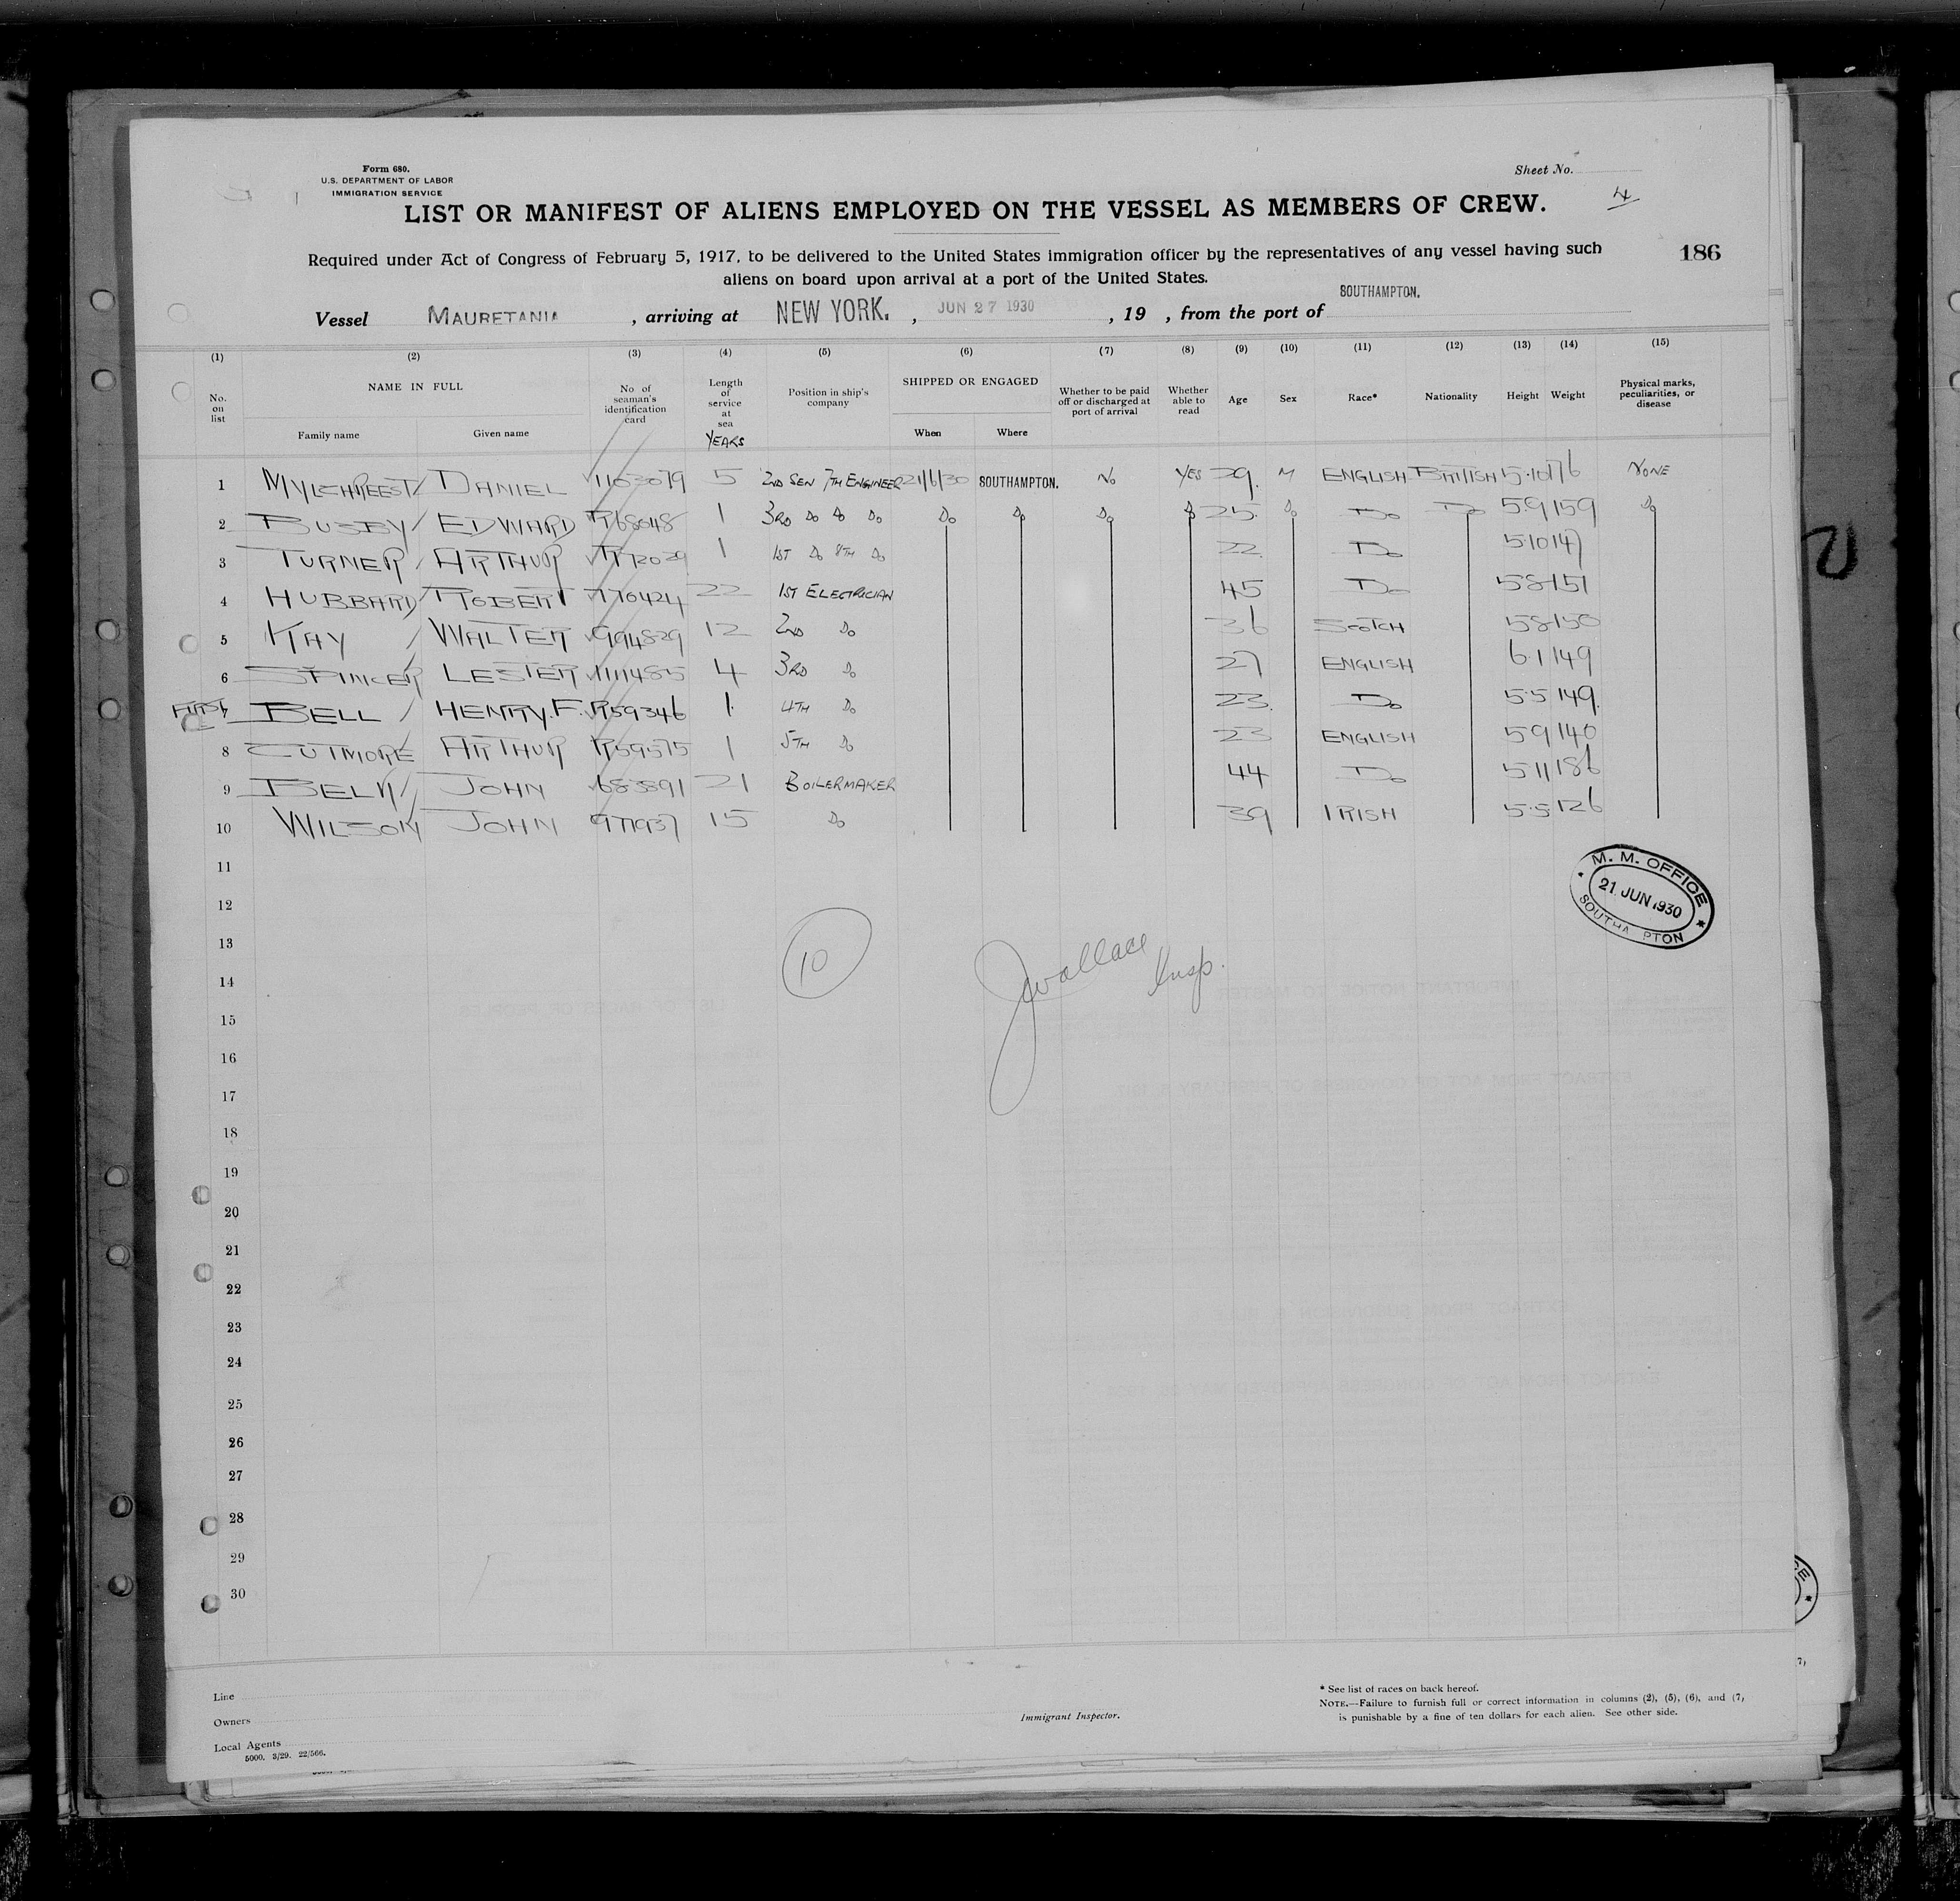 Form 680.
U.S. DEPARTMENT OF LABOR
IMMIGRATION SERVICE
Sheet No.
4
LIST OR MANIFEST OF ALIENS EMPLOYED ON THE VESSEL AS MEMBERS OF CREW.
186
Required under Act of Congress of February 5, 1917, to be delivered to the United States immigration officer by the representatives of any vessel having such
aliens on board upon arrival at a port of the United States.
Vessel MAURETANIA, arriving at NEW YORK., JUN 27 1930, 19 , from the port of SOUTHAMPTON.
(1) (2) (3) (4) (5) (6) (7) (8) (9) (10) (11) (12) (13) (14) (15)
No. on list NAME IN FULL Family name Given name No. of seaman's identification card Length of service at sea YEARS Position in ship's company SHIPPED OR ENGAGED When Where Whether to be paid off or discharged at port of arrival Whether able to read Age Sex Race* Nationality Height Weight Physical marks, peculiarities, or disease
1 MYLCHREEST DANIEL 1103079 5 2ND SEN 7TH ENGINEER 21/6/30 SOUTHAMPTON. No YES 29. M ENGLISH BRITISH 5·10 176 NONE
2 BUSBY EDWARD R68048 1 3RD Do Do Do Do Do Do Do 25. Do Do Do 5·9 159 Do
3 TURNER ARTHUR 1 1ST Do 8TH Do 22. Do 5·10 147
4 HUBBARD ROBERT 770424 22 1ST ELECTRICIAN 45 Do 5·8 151
5 KAY WALTER 994829 12 2ND Do 36 SCOTCH 5·8 150
6 SPINCER LESTER 1111485 4 3RD Do 27 ENGLISH 6·1 149
FIRST 7 BELL HENRY.F. R59346 1 4TH Do 23. Do 5·5 149.
8 CUTMORE ARTHUR R59575 1 5TH Do 23 ENGLISH 5·9 140
9 JOHN 683391 21 BOILERMAKER 44 Do 5·11 186
10 WILSON JOHN 971937 15 Do 39 IRISH 5·5 126
11
M. M. OFFICE
21 JUN 1930
SOUTHA PTON
12
13
10
J Wallace
Insp.
14
15
16
17
18
19
20
21
22
23
24
25
26
27
28
29
30
Line
Owners
Local Agents
5000. 3/29. 22/566.
Immigrant Inspector.
* See list of races on back hereof.
NOTE.—Failure to furnish full or correct information in columns (2), (5), (6), and (7,
is punishable by a fine of ten dollars for each alien. See other side.